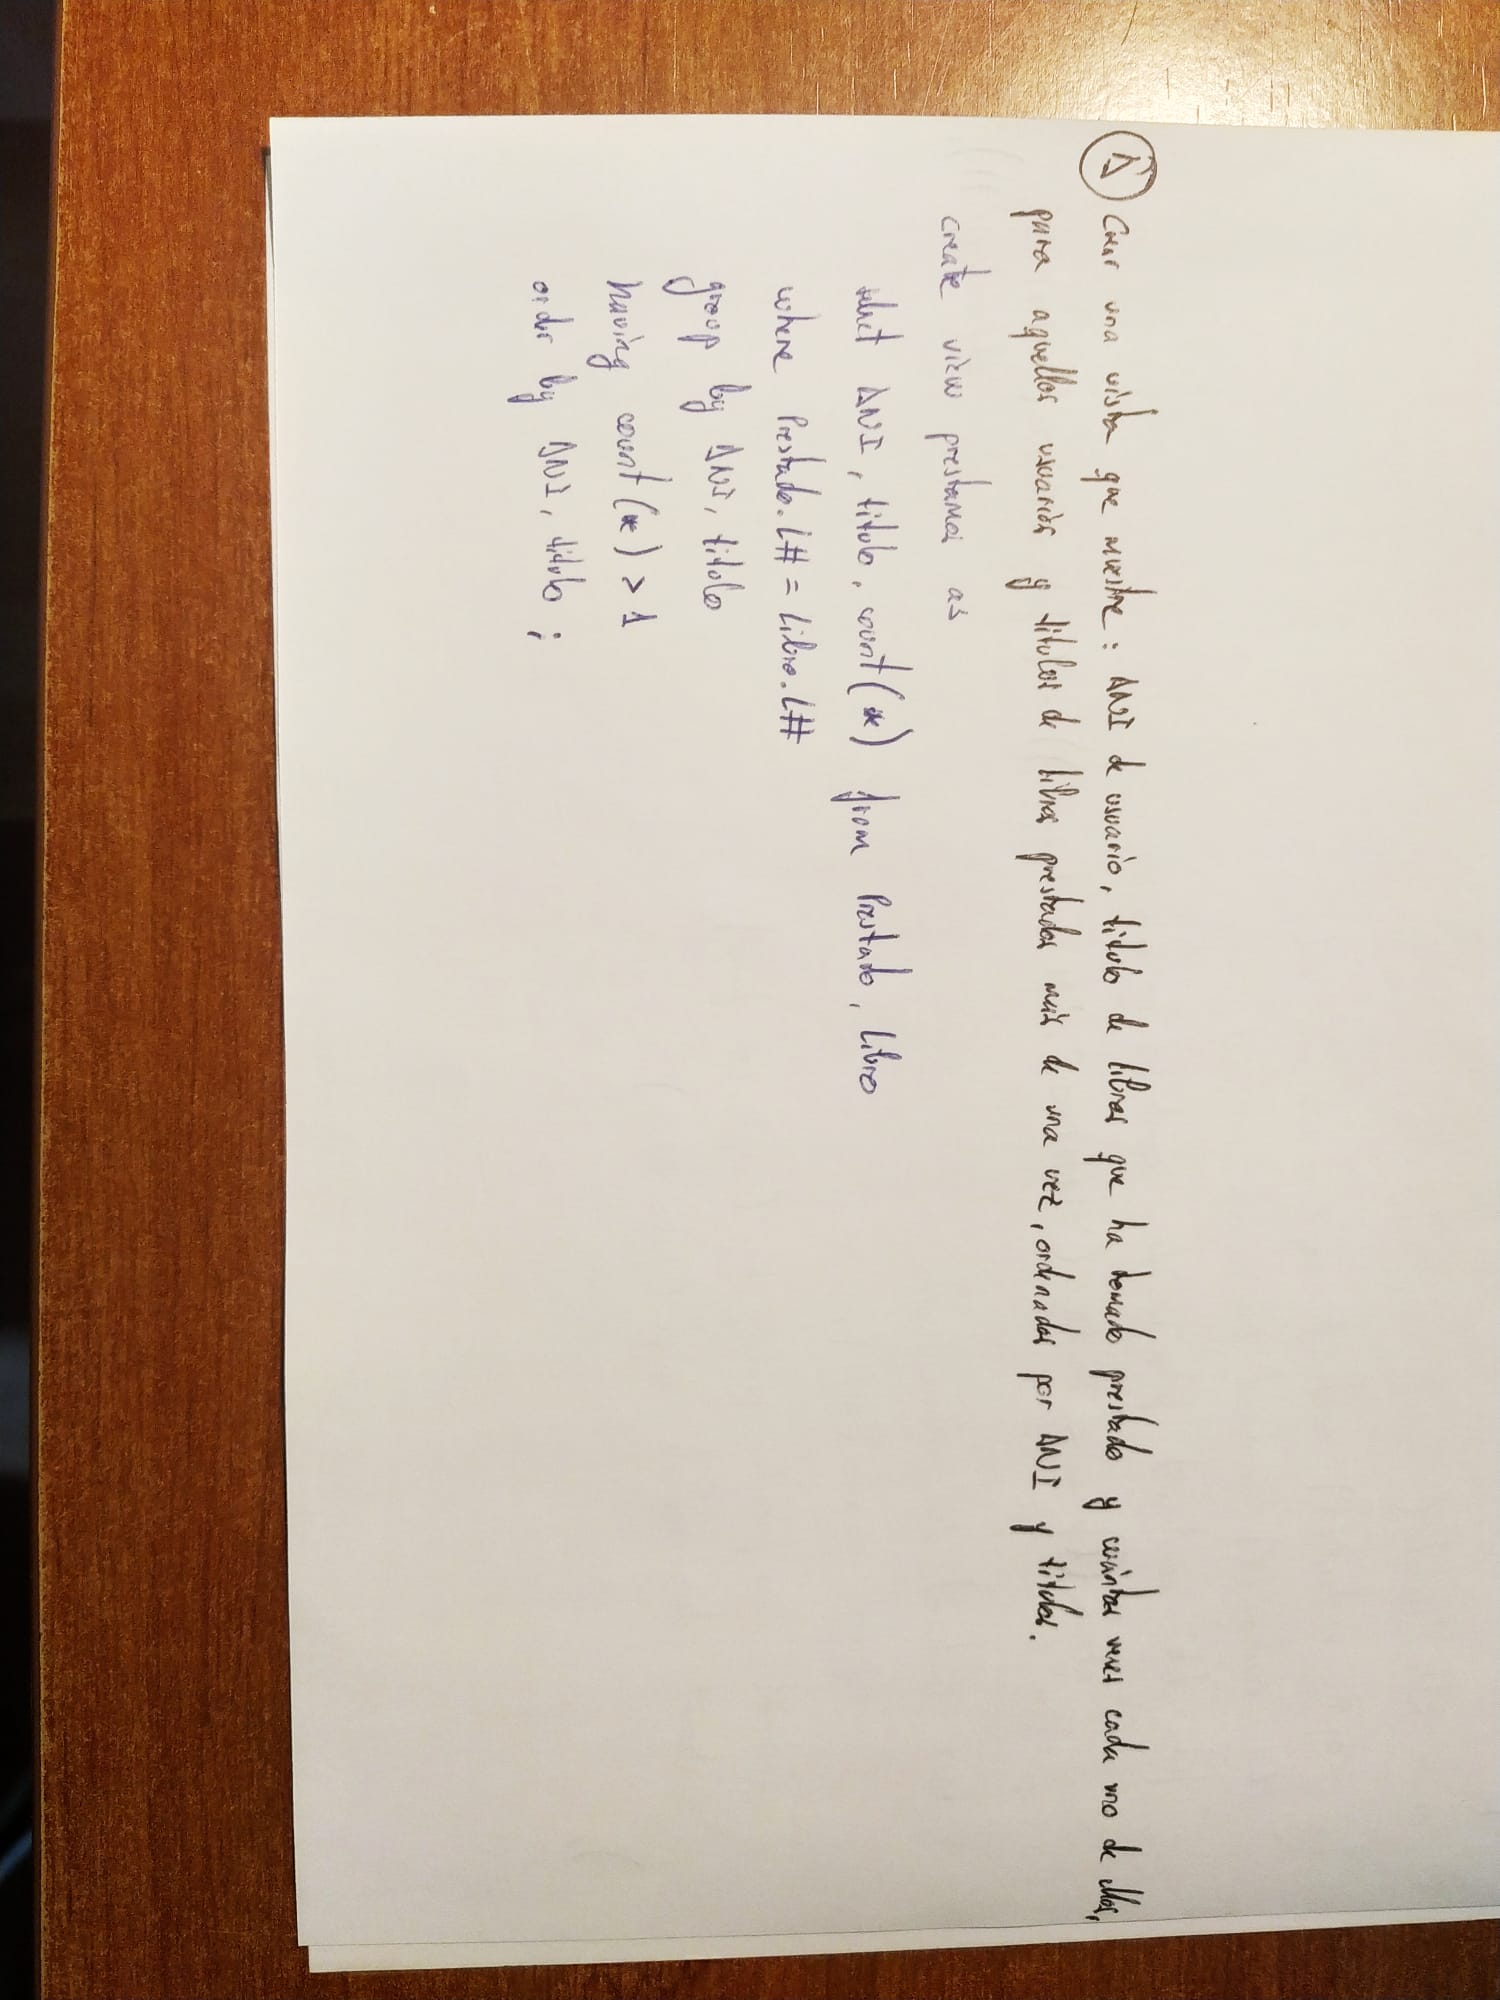 ① Crear una vista que muestre: DNI de usuario, titulo de libros que ha tomado prestado y cuántas veces cada uno de ellos,
para aquellos usuarios y titulos de libros prestados más de una vez, ordenados por DNI y titulos.
create view prestamos as
select DNI, titulo, count(*) from Prestado, Libro
where Prestado.L# = Libro.L#
group by DNI, titulo
having count(*) > 1
order by DNI, titulo;